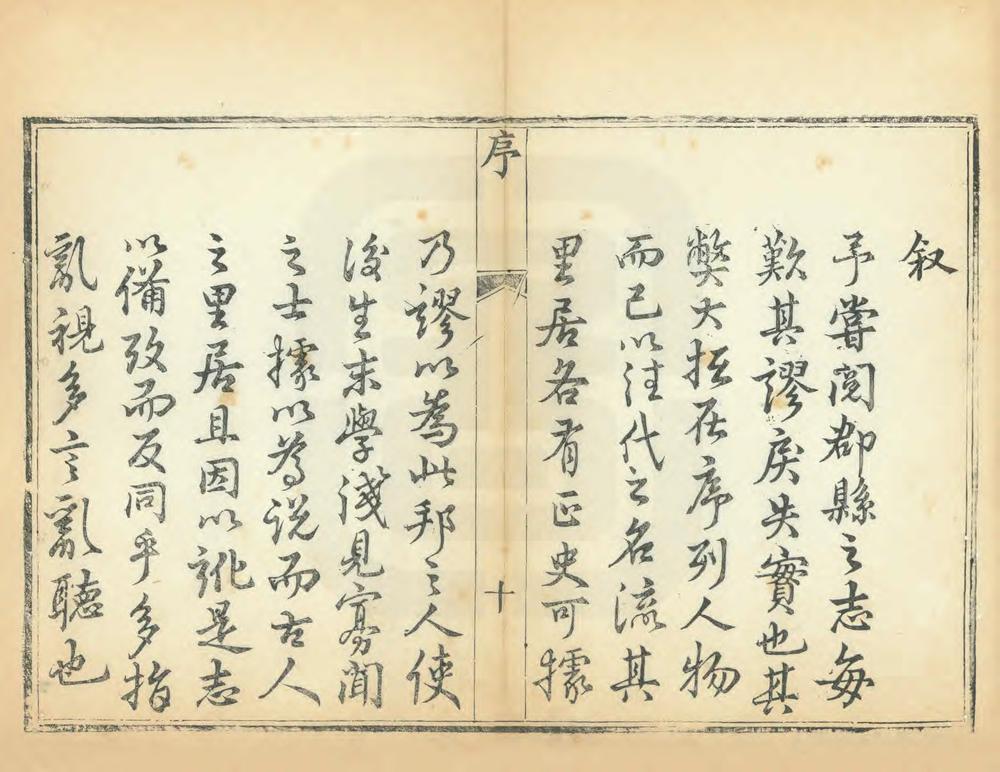 叙
予嘗閲郡縣之志每
歎其謬戾失實也其
弊大抵在序列人物
而已以往代之名流其
里居各有正史可據
序
十
乃謬以為此邦之人使
後生末學淺見寡聞
之士據以為説而古人
之里居且因以訛是志
以備攷而反同乎多指
亂視多言亂聽也